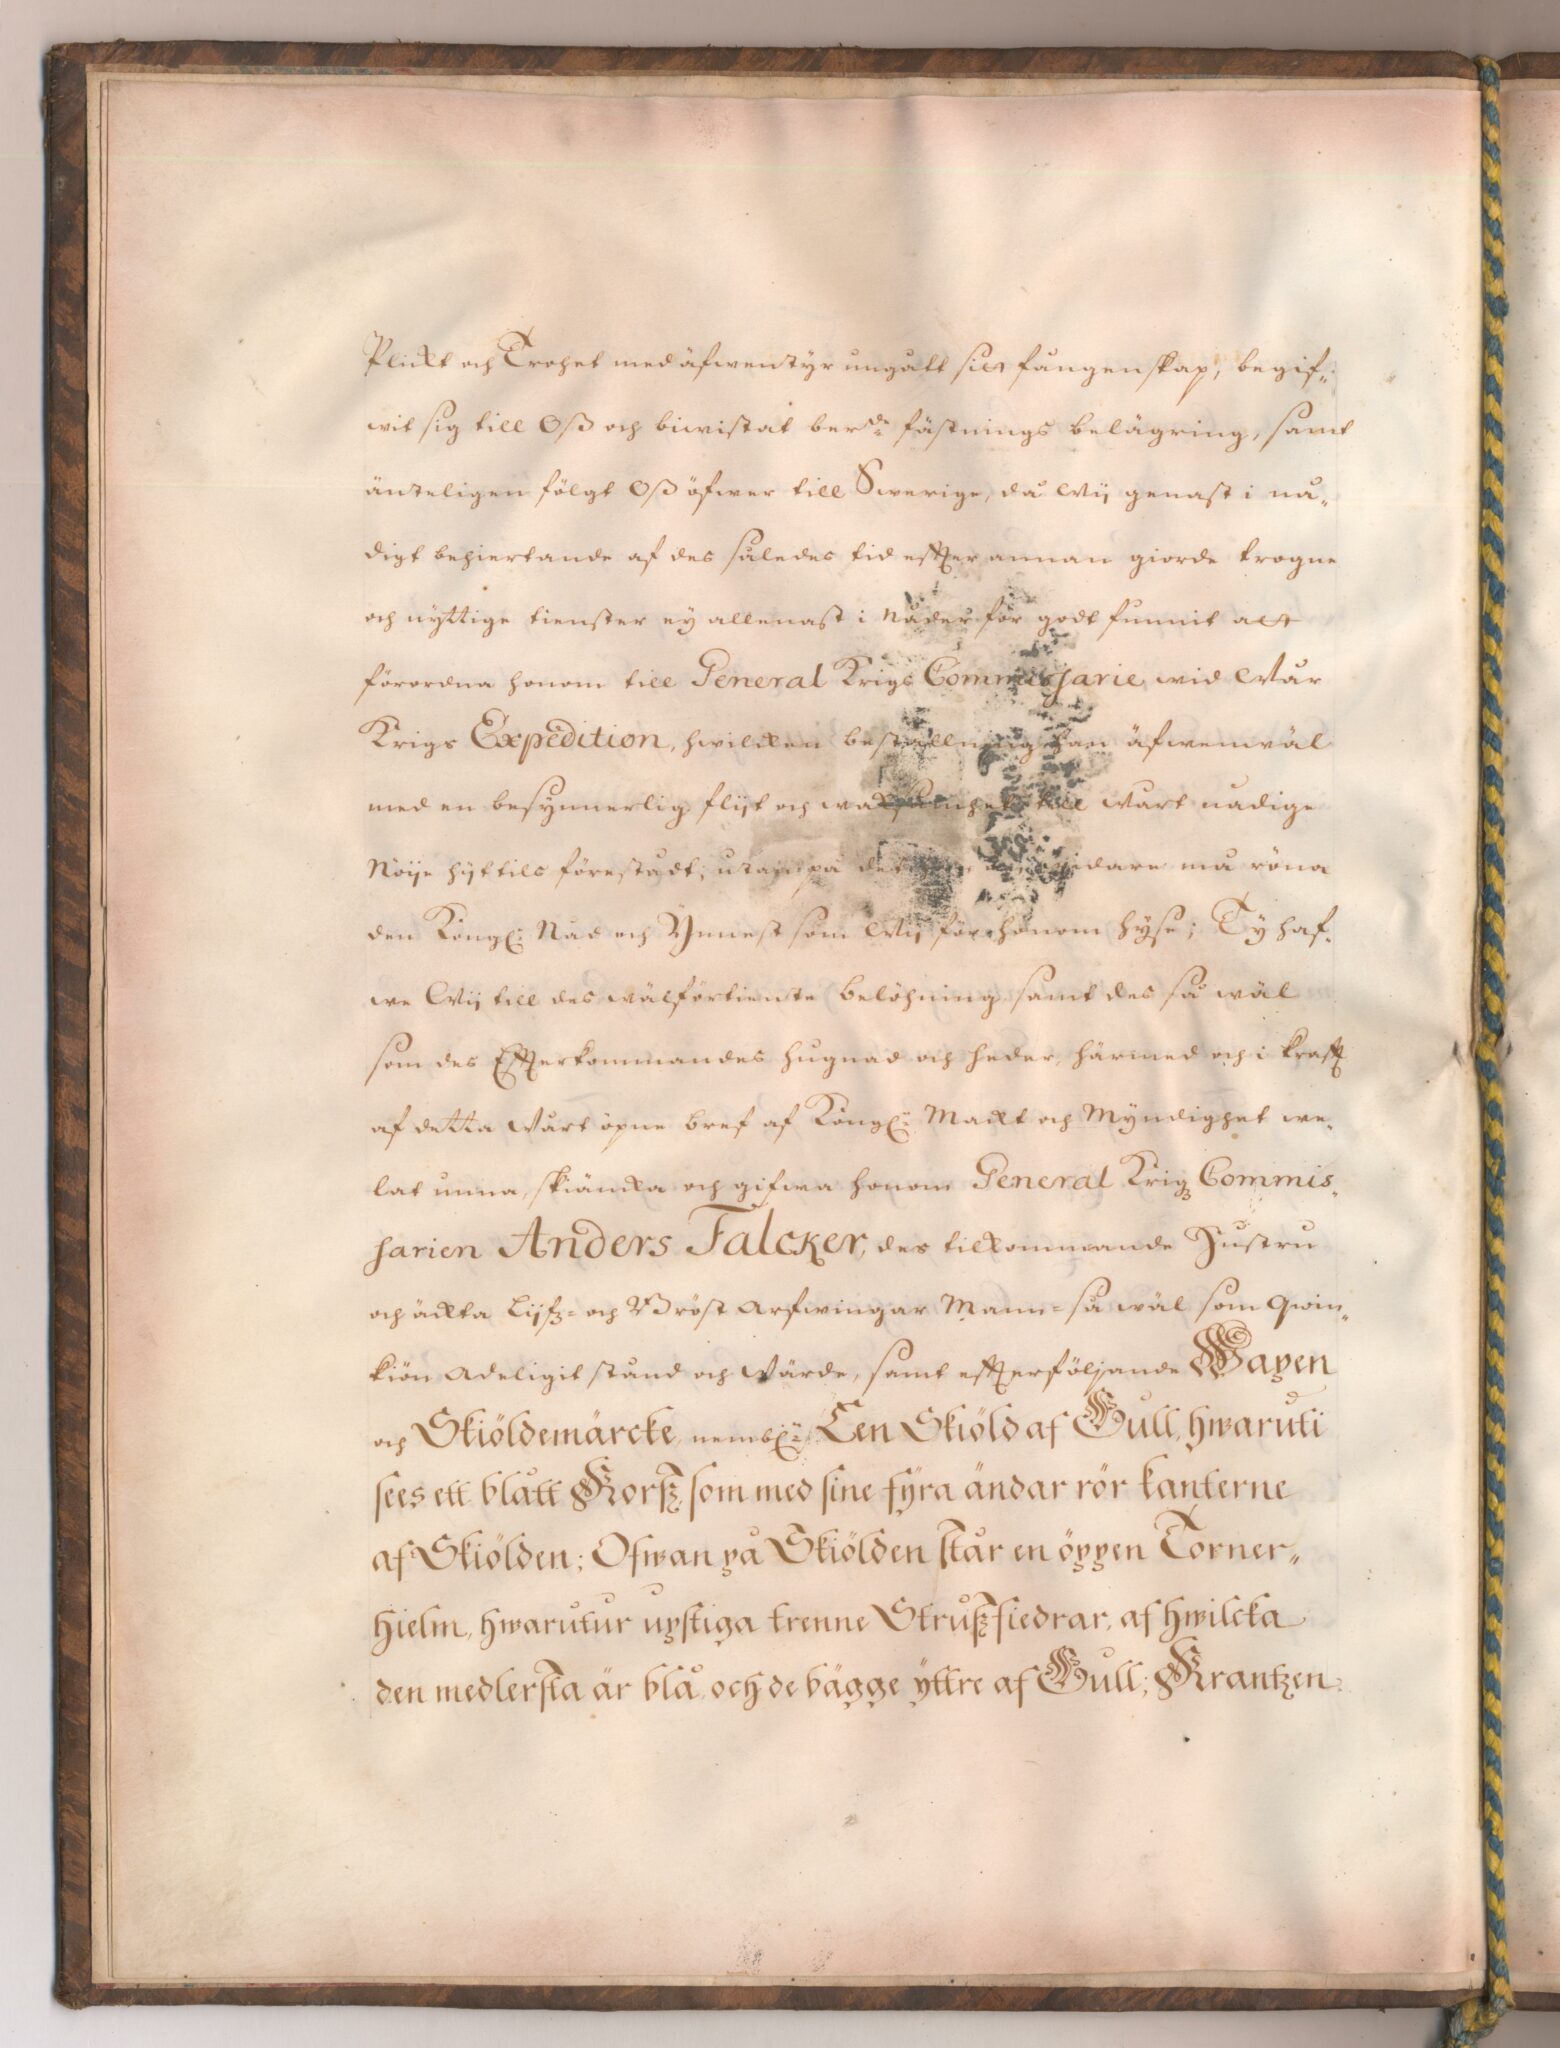 Plickt och Trohet med äfwentyr ungått sitt fångenskap, begif„
wit sig till Oß och biwistat ber:de fästnings belägring, samt
änteligen fölgt Oß öfwer till Swerige, då Wij genast i nå„
digt behiertande af des således tid effter annan giorde trogne
och nyttige tienster ey allenast i Nåder för godt funnit att
förordna honom till General Krigs Commissarie wid Wår
Krigs Expedition, hwilcken beställning han äfwenwäl
med en besynnerlig flijt och waksamhet till Wårt nådige
Nöije hijttils förestådt, utan på det han ytt widare må röna
den Kongl: Nåd och Ynnest som Wij för honom hyse; Ty haf„
we Wij till des wälförtiente belöhning samt des så wäl
som des Effterkommandes hugnad och heder, härmed och i krafft
af detta Wårt öpne bref af Kongl: Mackt och Myndighet we„
lat unna, skiäncka och gifwa honom General Krigz Commis„
sarien Anders Falcker, des tilkommande Hustru
och äckta Lijfz= och Bröst Arfwingar Mann= så wäl som Qwin„
kiön Adeligit stånd och Wärde, samt effterföljande Wapen
och Skiöldemärcke, nembl: Een Skiöld af Gull, hwaruti
sees ett blått Korß, som med sine fÿra ändar rör kanterne
af Skiölden; Ofwan på Skiölden står en öppen Torner„
hielm, hwarutur upstiga trenne Strußfiedrar, af hwilcka
den medlersta är blå, och de bägge ÿttre af Gull; Krantzen